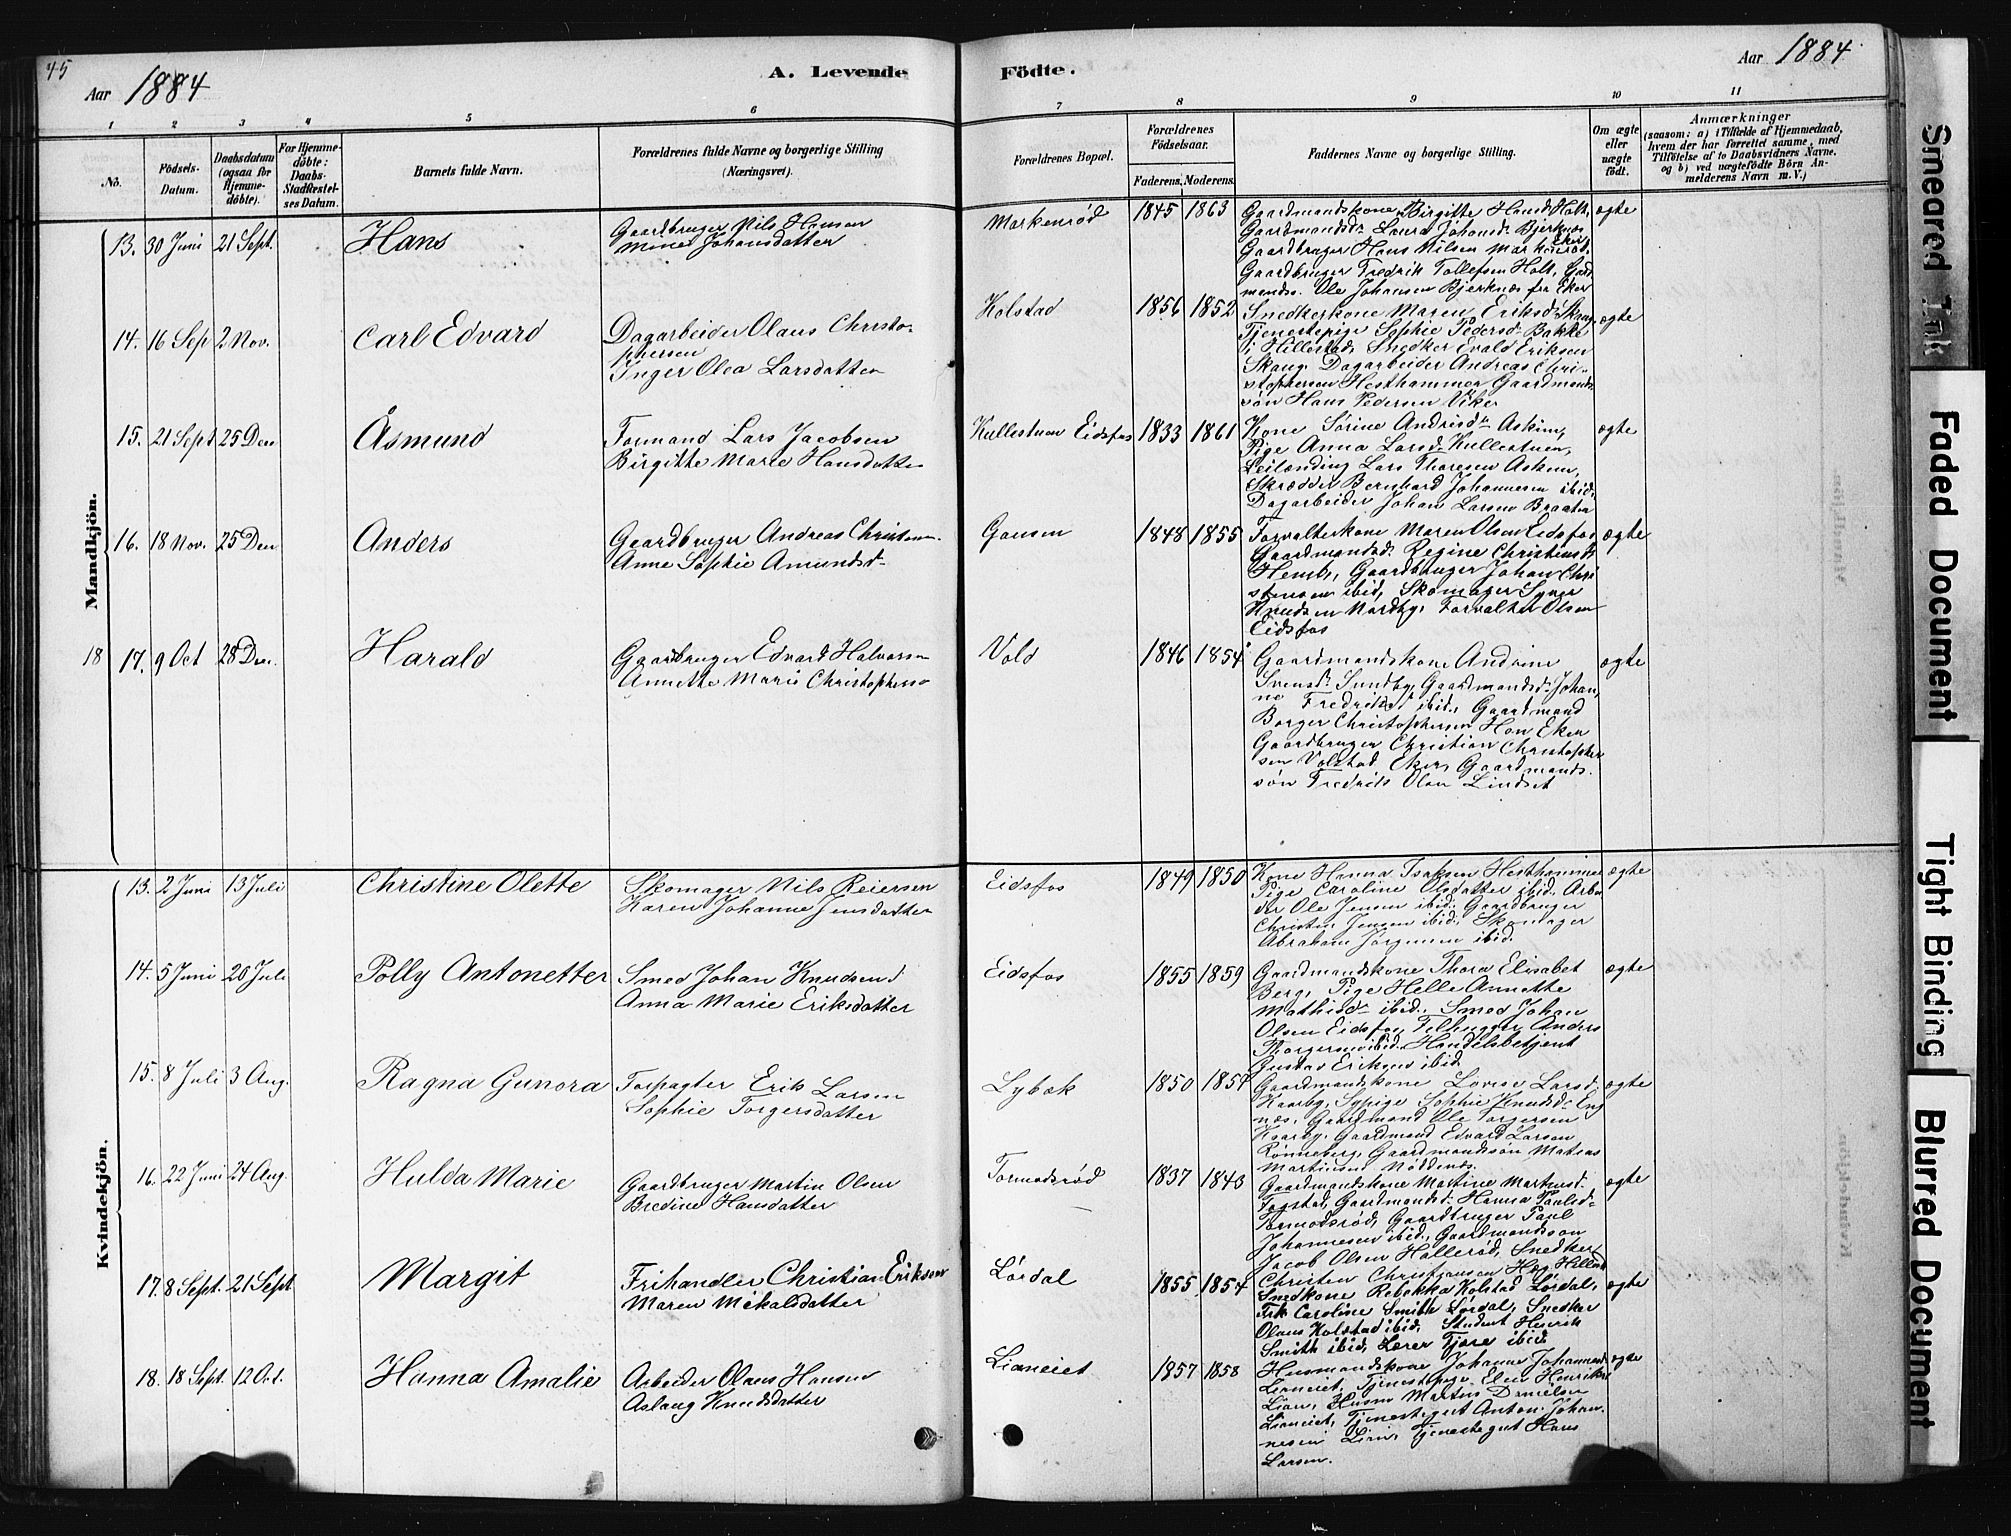 45
Aar 1884
A. Levende
Födte.
Aar 1884
1 2 3 4 5 6 7 8 9 10 11
No.
Födsels-Datum.
Daabsdatum (ogsaa for Hjemme-döbte).
For Hjemme-döbte: Daabs-Stadfæstel-ses Datum.
Barnets fulde Navn.
Forældrenes fulde Navne og borgerlige Stilling
(Næringsvei).
Forældrenes Bopæl.
Forældrenes Födselsaar.
Faderens. Moderens.
Faddernes Navne og borgerlige Stilling.
Om ægte eller uægte födt.
Anmærkninger
(saasom: a) i Tilfælde af Hjemmedaab,
hvem der har forrettet samme, med
Tilföielse af to Daabsvidners Navne.
og b) ved uægtefödte Börn An-
melderens Navn m. V.)
Mandkjön.
18
13. 30 Juni 21 Sept. Hans
Gaardbruger Nils Hansen
Mine Johansdatter
Markenrød 1845 1863
Gaardmandskone Birgitte Hansd. Holt,
Gaardmandsd. Laura Johansd. Bjerknæs
Eker
Gaardbruger Hans Nilsen Markenrød.
Gaardbruger Fredrik Tollefsen Holt, Gard
mands. Ole Johansen Bjerknæs fra Eker
ægte
14. 16 Sep 2 Nov. Carl Edvard
Dagarbeider Olaus Christo-
phersen
Inger Olea Larsdatter
Kolstad 1856 1852
Snedkerkone Maren Eriksd. Skaug
Tjenestepige Sophie Pedersd. Bakke
i Hillestad, Snedker Evald Eriksen
Skaug. Dagarbeider Andreas Chri-
stophersen Hesthammer Gaardmands
søn Hans Pedersen Viker
ægte
15. 21 Sept 25 Dec Åsmund
Formand Lars Jacobsen
Birgitte Marie Hansdatter
Kullestuen Eidsfos 1833 1861
Kone Sørine Andrisd. Askim,
Pige Anna Larsd. Kullestuen,
Leilænding Lars Thoresen Askim,
Skrædder Bernhard Johannesen ibid.
Dagarbeider Johan Larsen Braaten
ægte
16. 18 Nov. 25 Dec Anders
Gaardbruger Andreas Christensen
Anne Sophie Amundsd.
Gausen 1848 1855
Forvalterkone Maren Olsen Eidsfos
Gaardmandsd. Regine Christensd.
Hemb, Gaardbruger Johan Chri
stensen ibid, Skomager Syver
Knudsen Nordby, Forvalter Olsen
Eidsfos
ægte
17. 9 Oct 28 Dec. Harald
Gaardbruger Edvard Halvorsen
Annette Marie Christophersd
Vold 1846 1854
Gaardmandskone Andrine
Svensd. Sundby, Gaardmandsd. Johan
ne Fredriksd ibid, Gaardmand
Borger Christophersen Hon Eker
Gaardbruger Christian Christopher
sen Volstad Eker, Gaardmands-
søn Fredrik Olsen Lindset
ægte
Kvindekjön.
13. 2 Juni 13 Juli Christine Olette
Skomager Nils Reiersen
Karen Johanne Jensdatter
Eidsfos 1849 1850
Kone Hanna Isaksen Hesthammer
Pige Caroline Olsdatter ibid. Arbei
der Ole Jensen ibid. Gaardbruger
Christen Jensen ibid, Skomager
Abraham Jørgensen ibid.
ægte
14. 5 Juni 20 Juli Polly Antonetter
Smed Johan Knudsen
Anna Marie Eriksdatter
Eidsfos 1855 1859
Gaardmandskone Thora Elisabet
Berg, Pige Helle Annette
Mathisd. ibid. Smed Johan
Olsen Eidsfos, Filhugger Anders
Thorgersen ibid. Handelsbetjent
Gustav Eriksen ibid.
ægte
15. 8 Juli 3 Aug. Ragna Gunora
Forpagter Erik Larsen
Sophie Torgersdatter
Lybæk 1850 1854
Gaardmandskone Lovise Larsd.
Kaarby, Sypige Sophie Knudsd. Eng
næs, Gaardmand Ole Torgersen
Kaarby, Gaardmand Edvard Larsen
Rønneberg, Gaardmandssøn Matias
Martinsen Nøddenæs.
ægte
16. 22 Juni 24 Aug. Hulda Marie
Gaardbruger Martin Olsen
Bredine Hansdatter
Tormodsrød 1837 1843
Gaardmandskone Martine Martinsd.
Fogstad, Gaardmandsd. Hanna Paulsd.
Tormodsrød, Gaardbruger Paul
Johannesen ibid, Gaardmandssøn
Jacob Olsen Hallerød, Snedker
Christen Christjansen Høg Hillest
ægte
17. 8 Sept. 21 Sept Margit
Frihandler Christian Erikson
Maren Mikalsdatter
Lørdal 1855 1854
Snedkone Rebekka Kolstad Lørdal,
Frk Caroline Smith Lørdal, Snedker
Olaus Kolstad ibid, Student Henrik
Smith ibid, Lærer Tjøre ibid
ægte
18. 18 Sept. 12 Oct. Hanna Amalie
Arbeider Olaus Hansen
Aslaug Knudsdatter
Lianeiet 1857 1858
Husmandskone Johanne Johannesd
Lianeiet, Tjenestepige Elen Henriks
Lian, Husm Martin Danielsen
Lianeiet, Tjenestegut Anton Johan
nesen Lian, Tjenestegut Hans
Larsen.
ægte
Smeared Ink
Faded Document
Tight Binding
Blurred Document